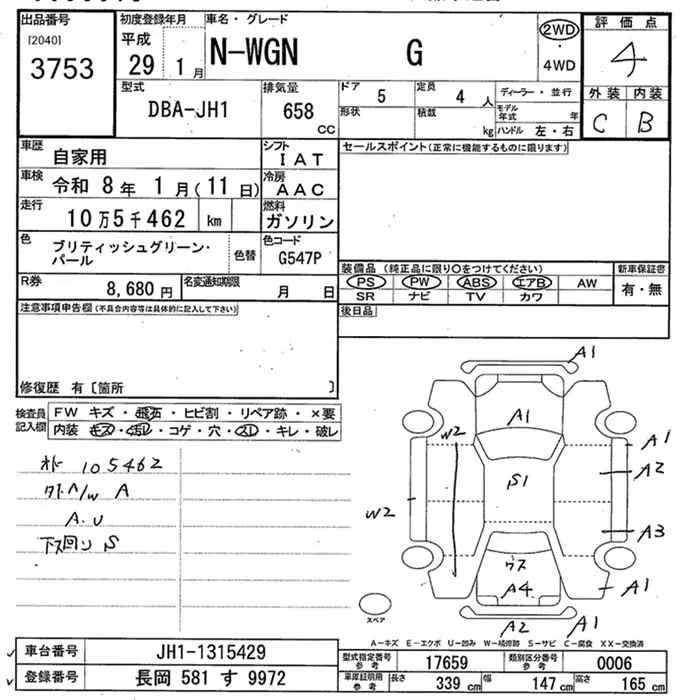 出品番号
[2040]
3753
初度登録年月
平成
29 1月
車名・グレード
N-WGN G
2WD
・
4WD
評価点
4
外装 内装
C B
型式
DBA-JH1
排気量
658 CC
ドア 5
定員 4 人
ディーラー・並行
形状
積載 kg
モデル年式 年
ハンドル 左・右
車歴
自家用
シフト
IAT
セールスポイント(正常に機能するものに限ります)
車検 令和 8年 1月(11日)
冷房
AAC
走行
10万5千462 km
燃料
ガソリン
色
ブリティッシュグリーン・
パール
色替
色コード
G547P
装備品 (純正品に限り○をつけてください)
新車保証書
PS PW ABS エアB AW
有・無
SR ナビ TV カワ
R券
8,680円
名変通知期限
月 日
注意事項申告欄(不具合内容等は具体的に記入して下さい)
後日品
修復歴 有〔箇所 〕
検査員
記入欄
FW キズ・飛石・ヒビ割・リペア跡・×要
内装 キズ・汚レ・コゲ・穴・スレ・キレ・破レ
オド 105462
A.U
下回り S
A1
A1
W2
A1
A2
S1
W2
A3
ウス
A4
A1
A2
A1
スペア
A-キズ E-エクボ U-凹み W-補修跡 S-サビ C-腐食 XX-交換済
車台番号
JH1-1315429
型式指定番号
参考
17659
類別区分番号
参考
0006
登録番号
長岡 581 す 9972
車庫証明用
参考
長さ 339 cm
幅 147 cm
高さ 165 cm